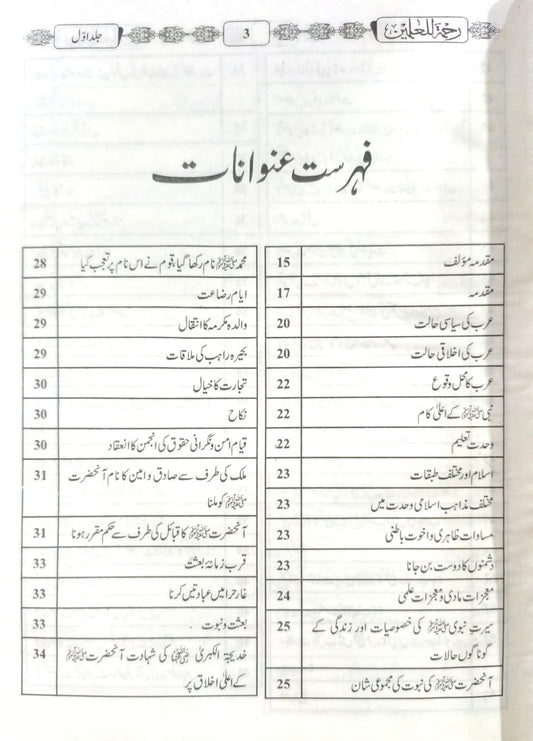 رحمۃ للعالمین
3
جلد اوّل
فہرست عنوانات
مقدمہ مؤلف 15
مقدمہ 17
عرب کی سیاسی حالت 20
عرب کی اخلاقی حالت 20
عرب کا محل وقوع 22
نبی ﷺ کے اعلیٰ کام 22
وحدت تعلیم 22
اسلام اور مختلف طبقات 23
مختلف مذاہب اسلامی وحدت میں 23
مساوات ظاہری و اخوت باطنی 23
دشمنوں کا دوست بن جانا 23
معجزات مادی و معجزات علمی 24
سیرت نبوی ﷺ کی خصوصیات اور زندگی کے 25
گوناگوں حالات
آنحضرت ﷺ کی نبوت کی مجموعی شان 25
محمد ﷺ نام رکھا گیا، قوم نے اس نام پر تعجب کیا 28
ایام رضاعت 29
والدہ مکرمہ کا انتقال 29
بحیرہ راہب کی ملاقات 29
تجارت کا خیال 30
نکاح 30
قیام امن و نگرانی حقوق کی انجمن کا انعقاد 30
ملک کی طرف سے صادق و امین کا نام آنحضرت 31
ﷺ کو ملنا
آنحضرت ﷺ کا قبائل کی طرف سے حکم مقرر ہونا 31
قرب زمانۂ بعثت 33
غار حرا میں عبادتیں کرنا 33
بعثت و نبوت 33
خدیجۃ الکبریٰ رضی اللہ عنہا کی شہادت آنحضرت ﷺ 34
کے اعلیٰ اخلاق پر